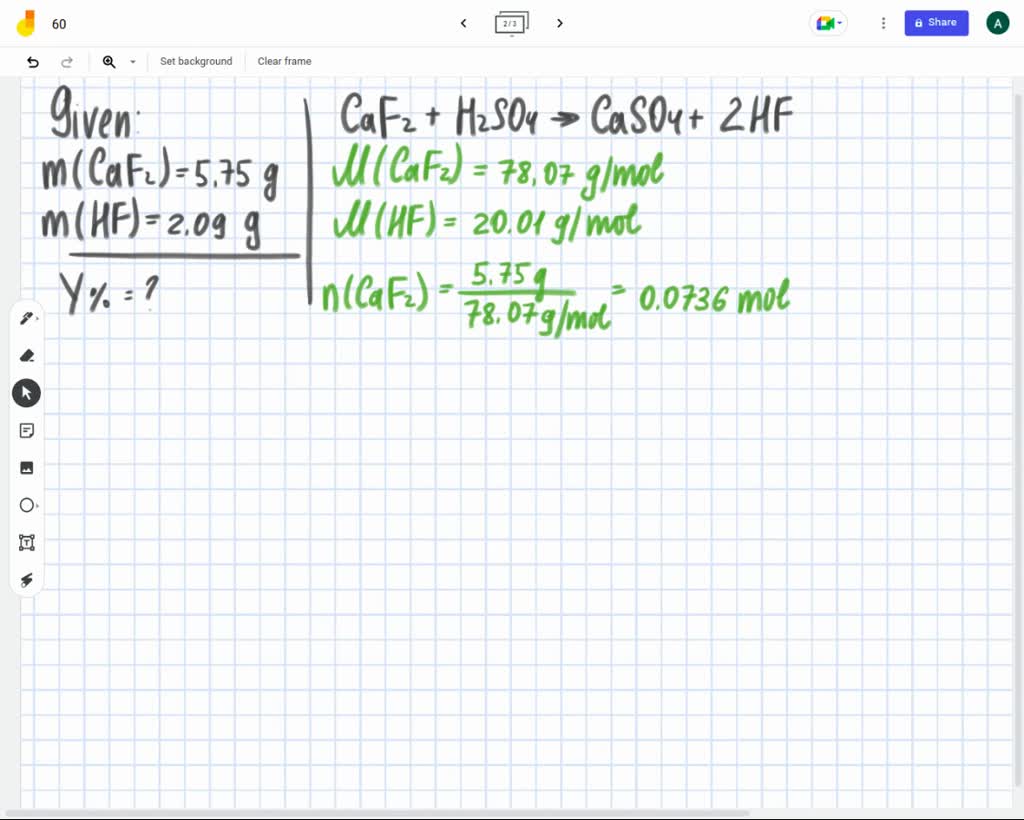 60
2 / 3
Share
A
Set background
Clear frame
Given:
m(CaF₂)=5.75 g
m(HF)=2.09 g
Y% = ?
CaF₂ + H₂SO₄ → CaSO₄ + 2HF
M(CaF₂) = 78.07 g/mol
M(HF) = 20.01 g/mol
n(CaF₂) = 5.75 g / 78.07 g/mol = 0.0736 mol
T